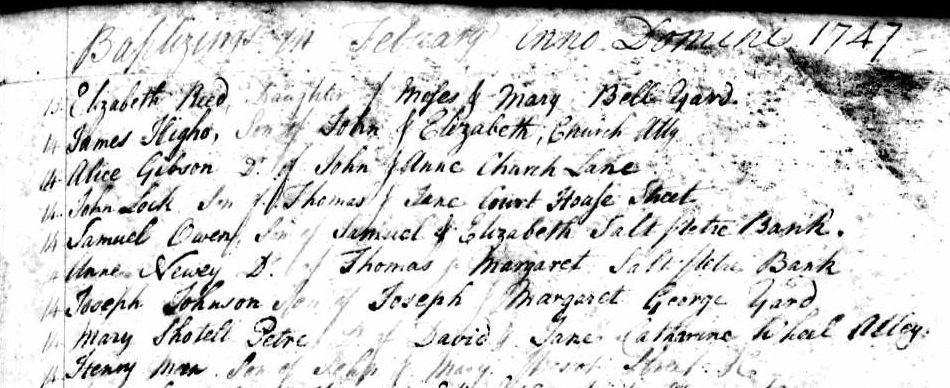 Baptizings in February Anno Domini 1747
13 Elizabeth Reed Daughter of Moses & Mary Bell Yard
14 James Higho, Son of John & Elizabeth, Church Ally
14 Alice Gibson D.r of John & Anne Church Lane
14 John Lock Son of Thomas & Jane Court House Street
14 Samuel Owen, Son of Samuel & Elizabeth Salt petre Bank.
14 Anne Newey D.r of Thomas & Margaret Salt petre Bank
14 Joseph Johnson Son of Joseph & Margaret George Yard
14 Mary Petre of David & Jane Catharine Wheel Alley.
14 Henry Man Son of & Mary